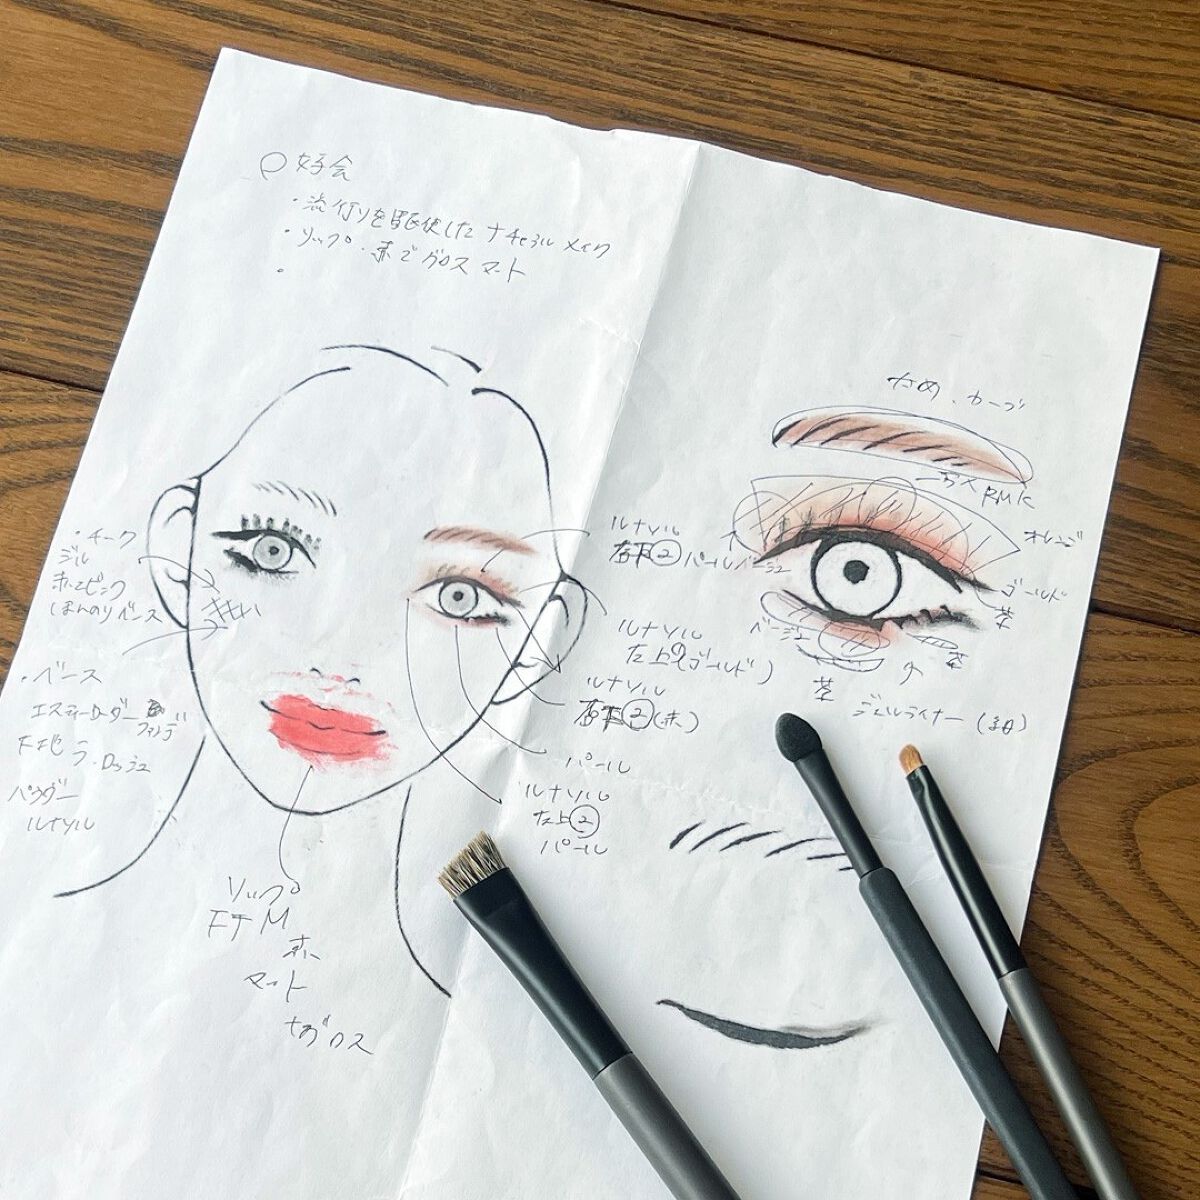 ・流行りを駆使したナチュラルメイク
・リップ・赤でグロスマート
太め、カーブ
RMK
オレンジ
ゴールド
茶
ベージュ
茶
茶
ジェルライナー(
ルナソル
②パールベージュ
ルナソル
左上 ゴールド)
ルナソル
②(赤)
パール
ルナソル
左上②
パール
・チーク
ジル
赤とピンク
ほんのりベース
・ベース
エスティローダー
ファンデ
下地 ラ・ロッシュ
パウダー
ルナソル
リップ
M
赤
マット
グロス